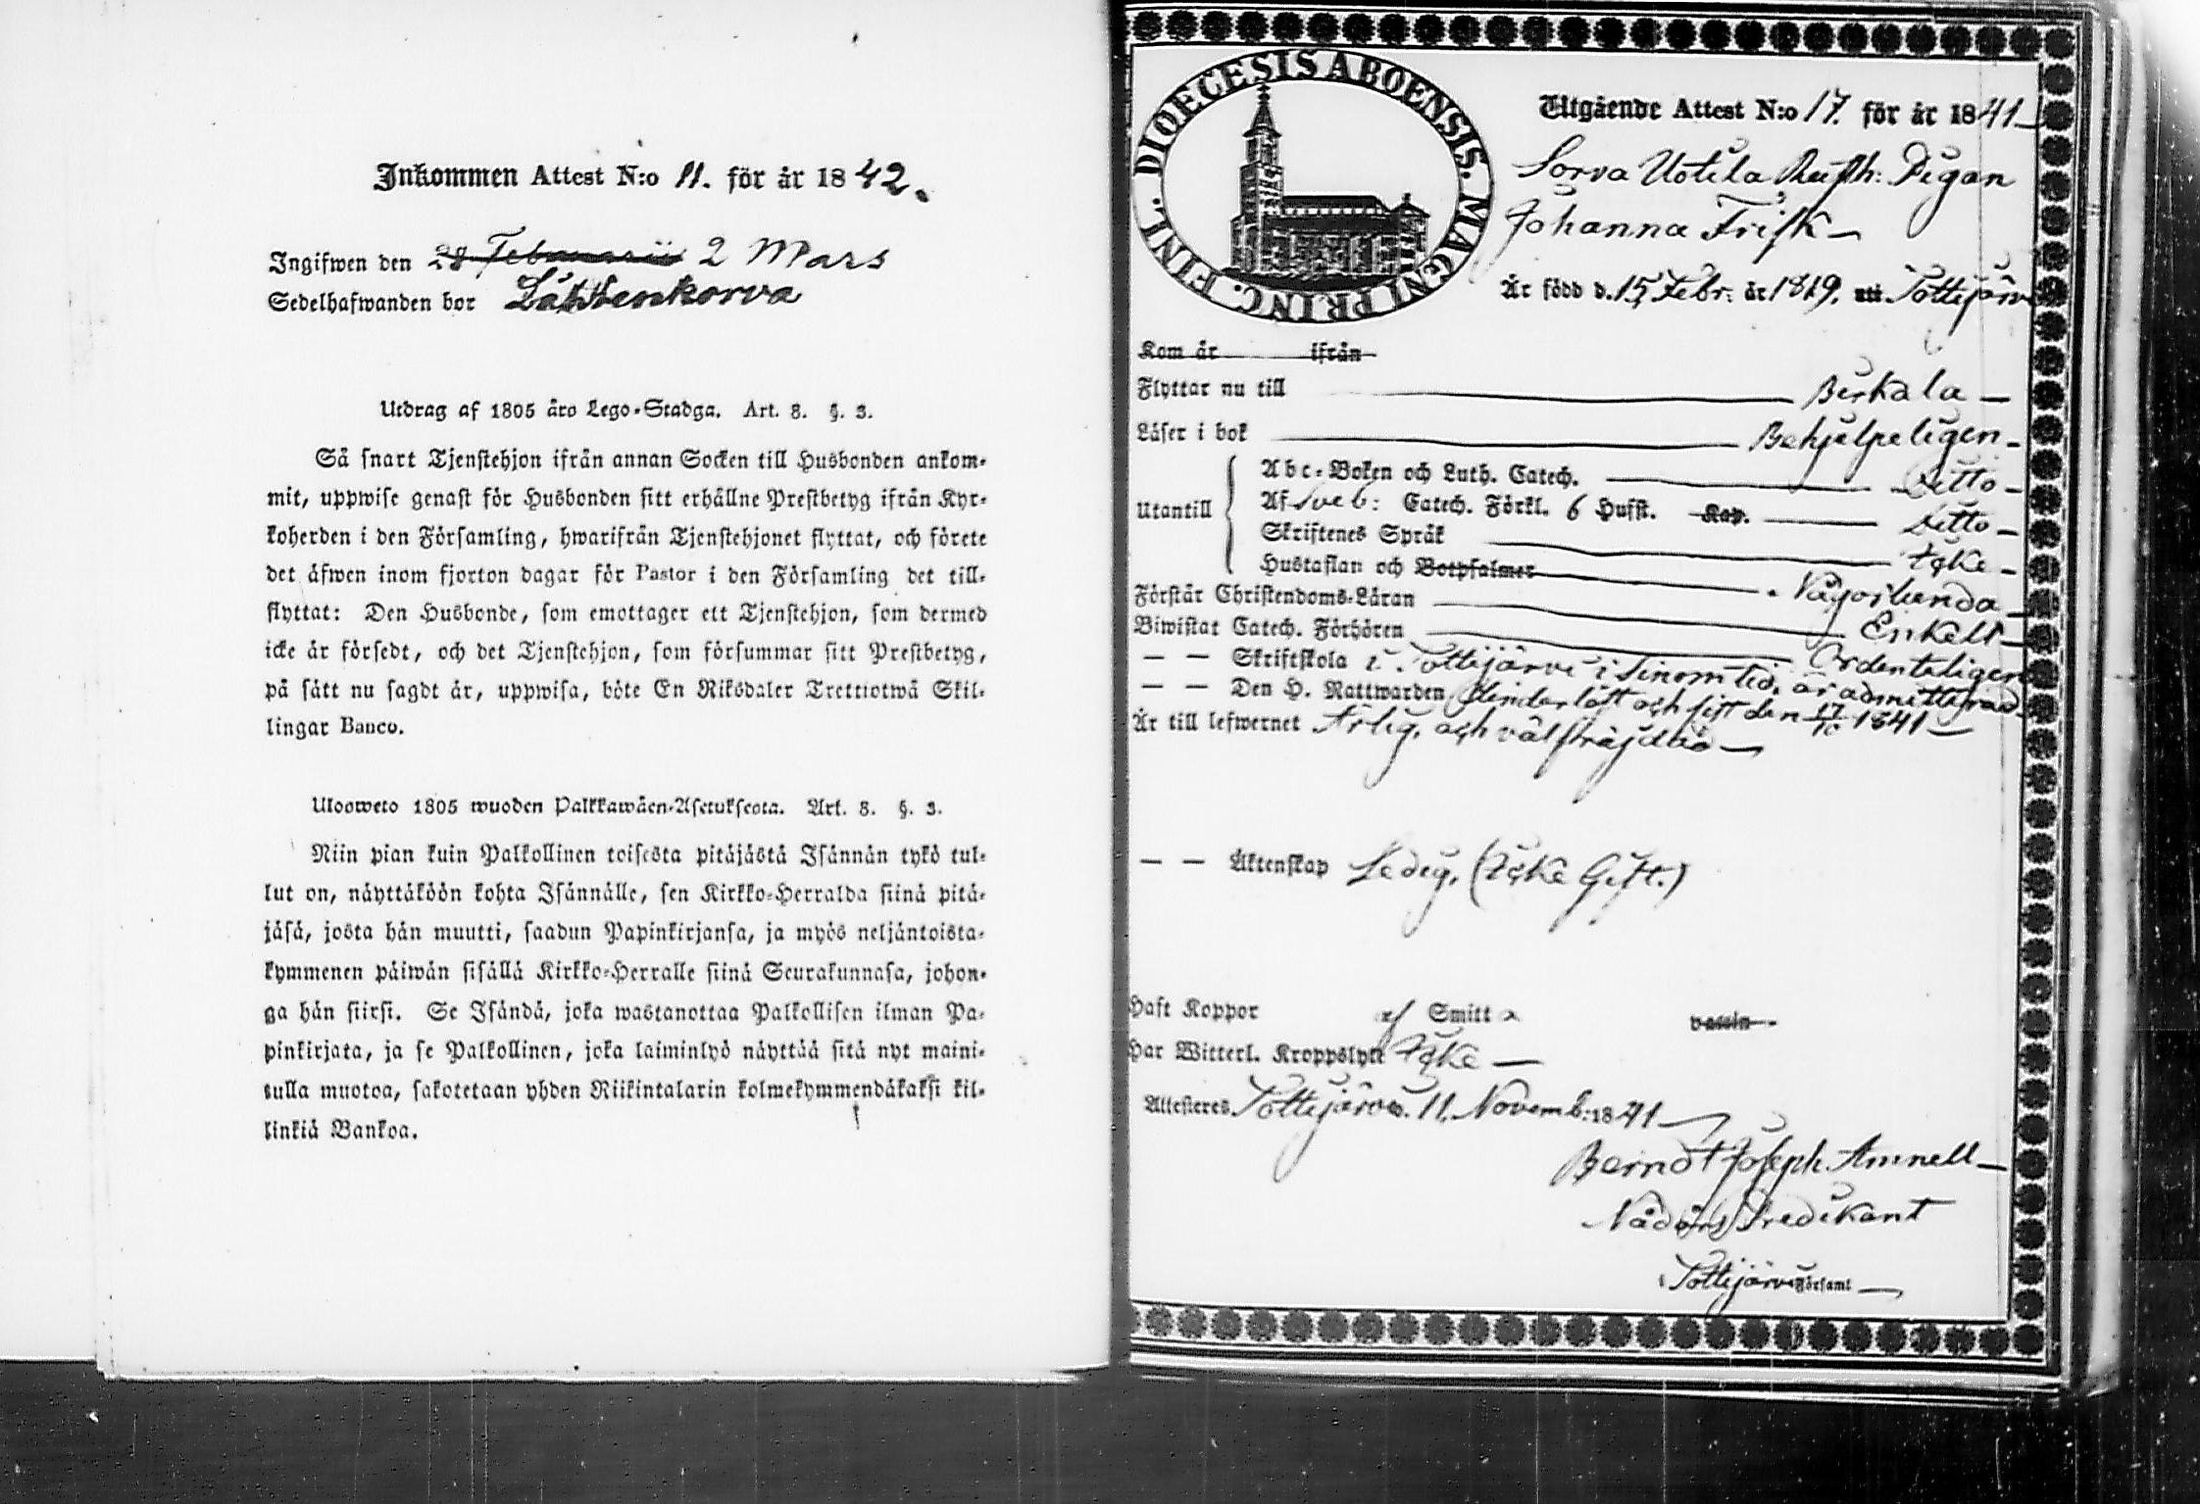 Inkommen Attest N:o 11. för år 1842.
Ingifwen den 28 Februarii 2 Mars
Sedelhafwanden bor
Utdrag af 1805 års Lego-Stadga. Art. 8. §. 3.
Så snart Tjenstehjon ifrån annan Socken till Husbonden ankom-
mit, uppwise genast för Husbonden sitt erhållne Prestbetyg ifrån Kyr-
koherden i den Församling, hwarifrån Tjenstehjonet flyttat, och förete
det äfwen inom fjorton dagar för Pastor i den Församling det till-
flyttat: Den Husbonde, som emottager ett Tjenstehjon, som dermed
icke är försedt, och det Tjenstehjon, som försummar sitt Prestbetyg,
på sätt nu sagdt är, uppwisa, böte En Riksdaler Trettiotwå Skil-
lingar Banco.
Uloosweto 1805 wuoden Palkkawäen-Asetuksesta. Art. 8. §. 3.
Niin pian kuin Palkollinen toisesta pitäjästä Isännän tykö tul-
lut on, näyttäköön kohta Isännälle, sen Kirkko-Herralda siinä pitä-
jäsä, josta hän muutti, saadun Papinkirjansa, ja myös neljäntoista-
kymmenen päiwän sisällä Kirkko-Herralle siinä Seurakunnasa, johon-
ga hän siirsi. Se Isändä, joka wastanottaa Palkollisen ilman Pa-
pinkirjata, ja se Palkollinen, joka laiminlyö näyttää sitä nyt maini-
tulla muotoa, sakotetaan yhden Riikintalarin kolmekymmendäkaksi kil-
linkiä Bankoa.
DIOECESIS ABOENSIS. MAGNI PRINC. FINL.
Utgående Attest N:o 17. för år 1841
Sorva Uotila Pigan
Johanna Frisk
Är född d. 15 Febr: år 1819. uti Tottijärvi
Kom år ifrån
Flyttar nu till Birkala
Läser i bok Behjelpeligen
Utantill
Abc-Boken och Luth. Catech. Ditto
Af Sveb: Catech. Förkl. 6 Hufst. Kap. Ditto
Skriftenes Språk Icke
Hustaflan och Botpsalmer Någorlunda
Förstår Christendoms-Läran Enkelt
Biwistat Catech. Förhören Ordenteligen
— — Skriftskola i Tottijärvi i sinom tid, är admitterad
— — Den H. Nattwarden och sist den 17/10 1841
Är till lefwernet Ärlig, och välfräjdad
— — Äktenskap Ledig, (Icke Gift.)
Haft Koppor af Smitta vaccin
Har Witterl. Kroppslyte Icke
Attesteres Tottijärvi. 11. Novemb: 1841
Berndt Joseph Amnell
Nådårs Predikant
i Tottijärvi Församl